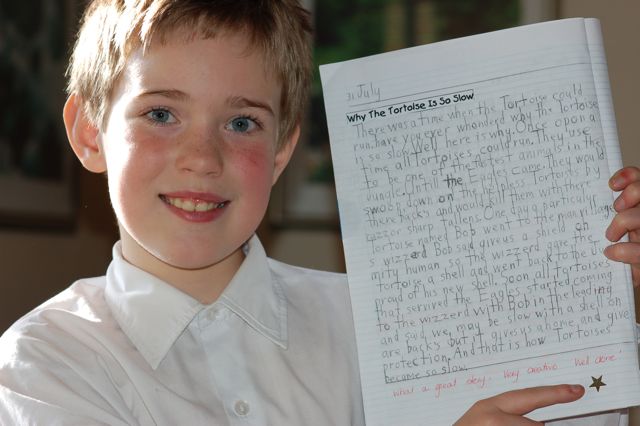 31 July
Why The Tortoise Is So Slow
There was a time when the Tortoise could
run. have you ever whonderd why the Tortoise
is so slow. Well here is why. Once opon a
time all Tortoises could run. They use
to be one of the fastest animals in the
jungle. Until the Eagles came. they would
swoop down on the helpless Tortoises by
there backs and would kill them with there
razzor sharp claws. One day a particuly
Tortoise named Bob went to the main village
s wizzerd Bob said give us a shield on
mity human. so the wizzerd gave that
tortoise a shell and went back to be
proud of his new shell. Soon all Tortoises
that servived the Eagles started coming
to the wizzerd with Bob in the leading
and said we may be slow with a shell on
are backs but it gives us a home and give
protection. And that is how Tortoises
became so slow.
What a great story. Very creative. Well done.